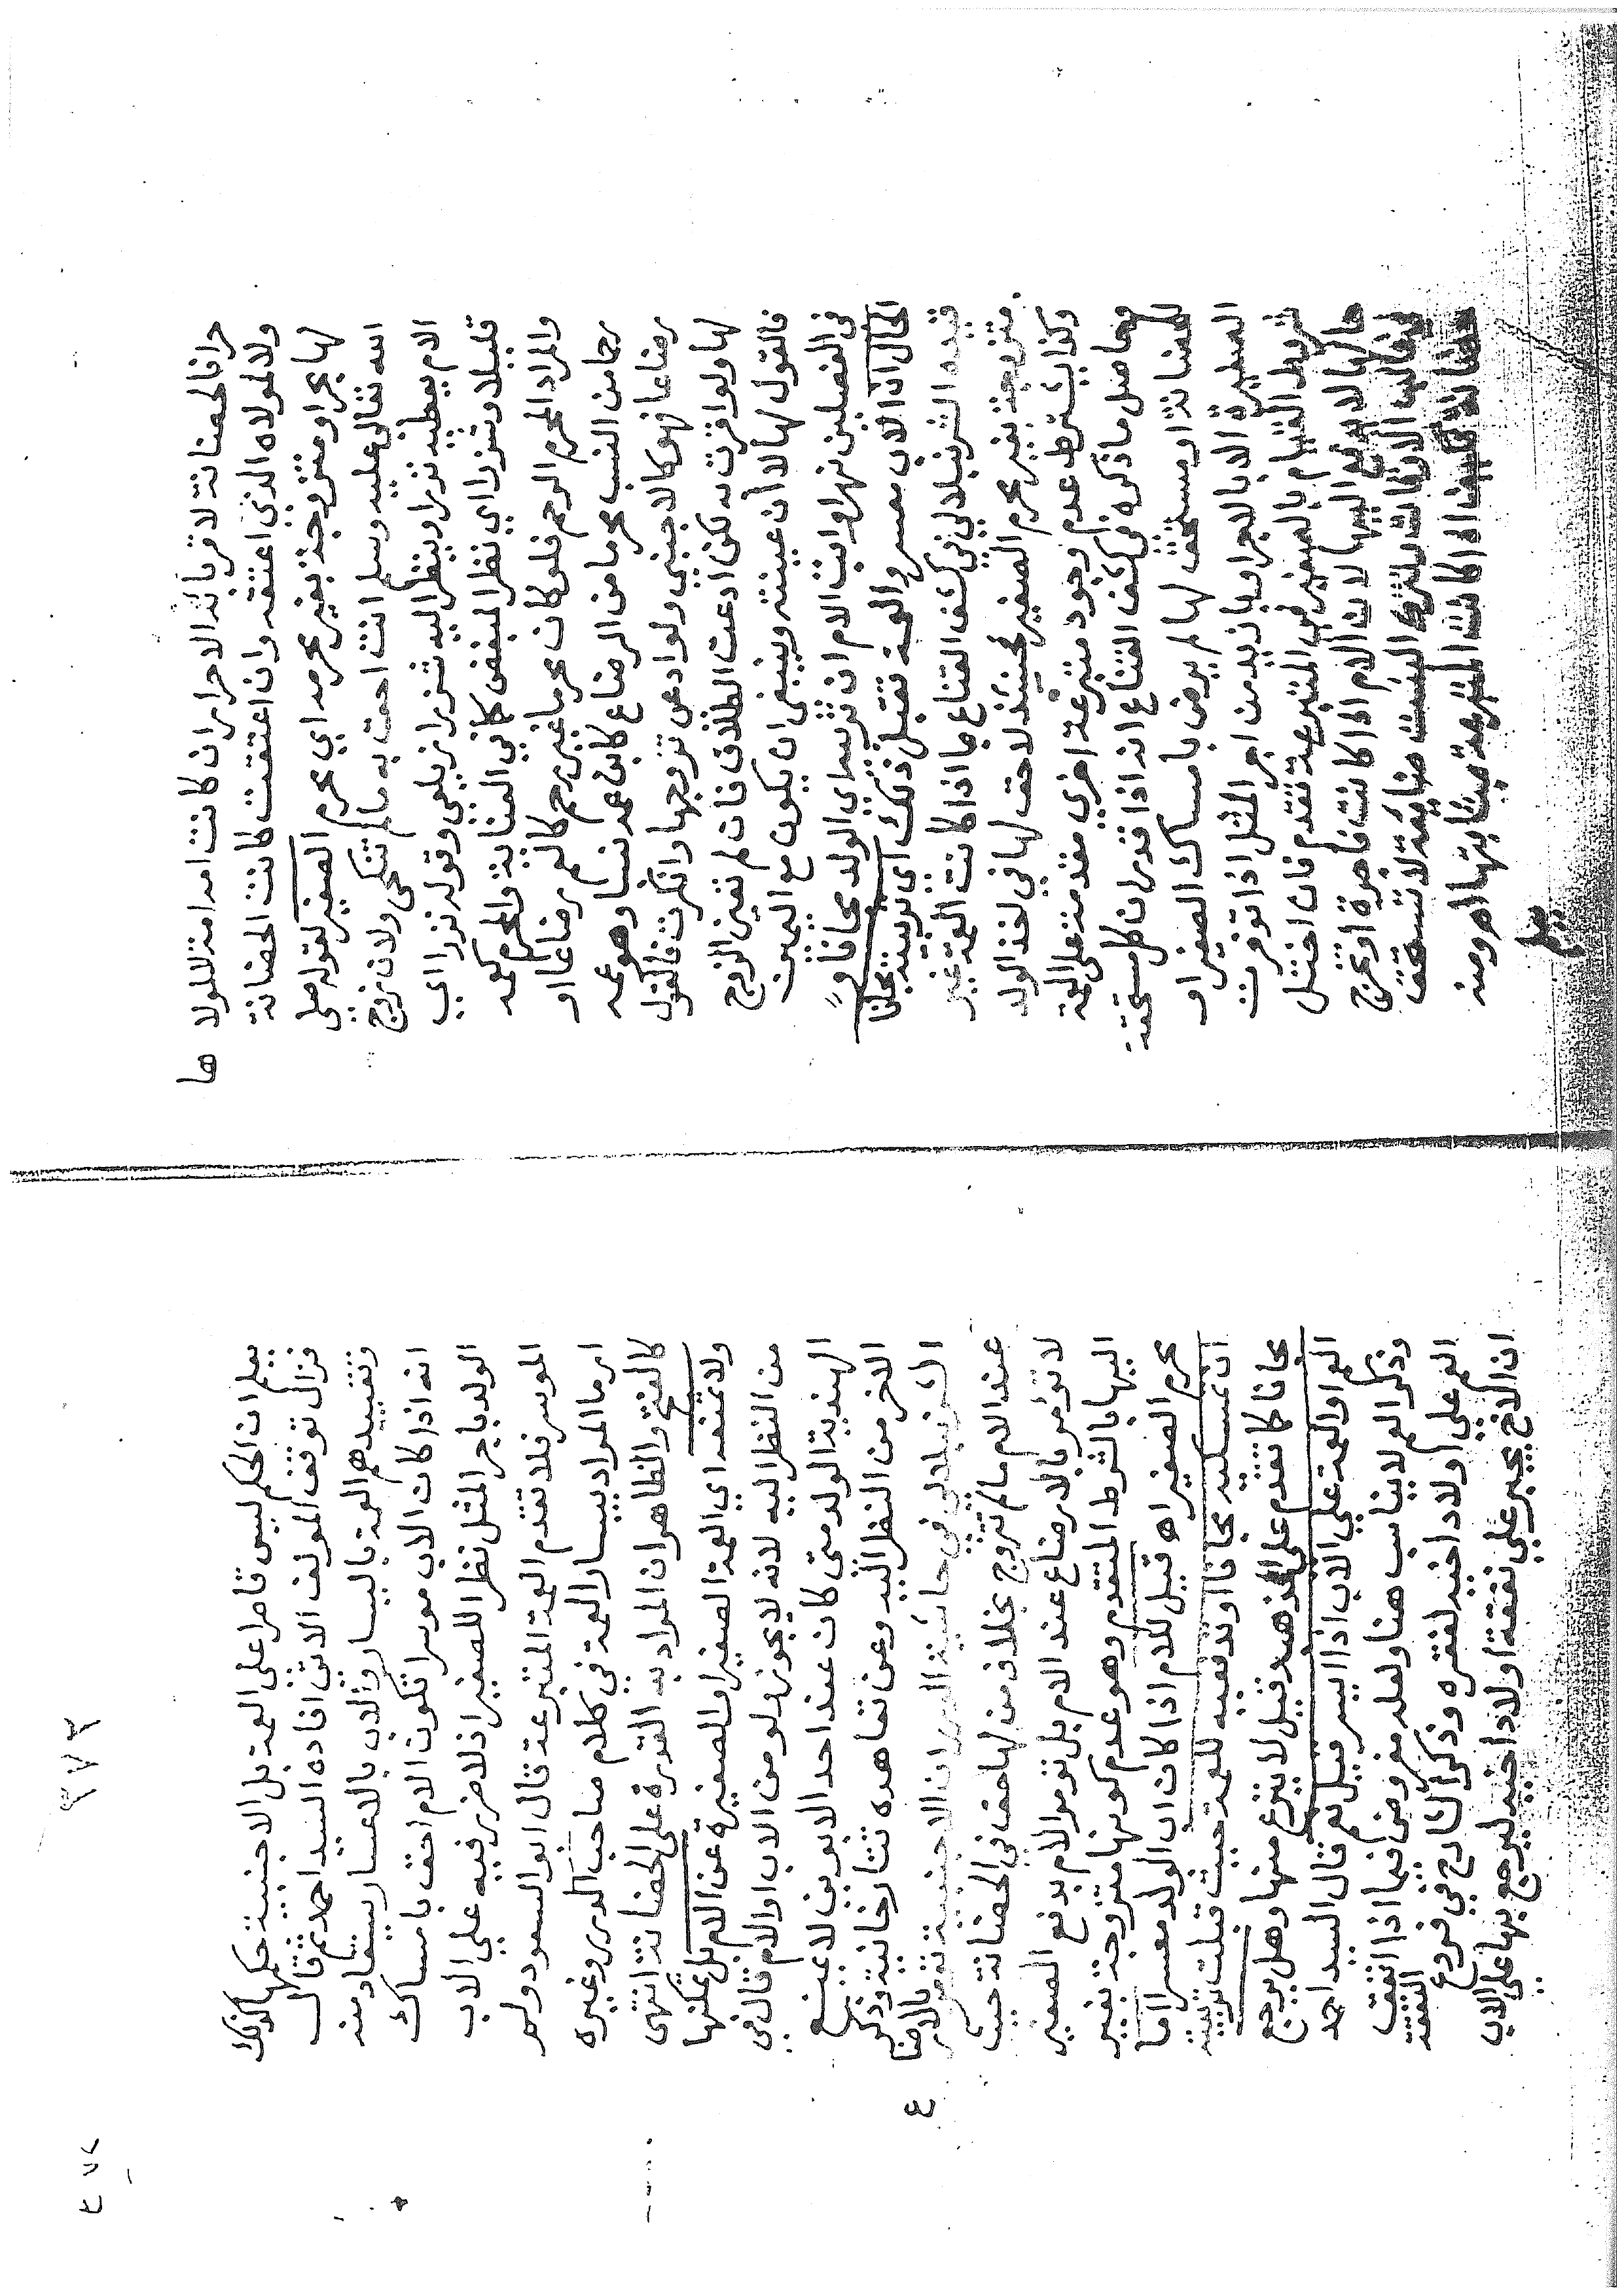 حرا فالحضانة لاقربائه الاحرار ان كانت امه امة لا لمولا
ها
ولا لمولاه الذي اعتقه وان اعتقت كانت الحضانة
لها بحر او متزوجة بغير محرمه اي محرم الصغير لقوله صلى
الله تعالى عليه وسلم انت احق به مالم تنكحي ولان زوج
الام يعطيه نزرا وينظر اليه شزرا زيلعي وقوله نزرا اي
قليلا وشزرا اي نظر المبغض كما في العناية والمحرم كعمه
والمراد المحرم الرحم فلو كان محرما غير رحم كالعم رضاعا او
رحما من النسب محرما من الرضاع كابن عمه نسبا وهو عمه
رضاعا فهو كالاجنبي ولو ادعى تزوجها وانكرت فالقول
لها ولو اقرت به لكن ادعت الطلاق فان لم تعين الزوج
فالقول لها لا ان عينته وينبغي ان يكون مع اليمين
في الفصلين نهر او ابت الام ان تربيه اي الولد مجانا و
الحال ان الاب معسر والعمة تقبل ذلك اي تربيته مجانا
قيده الشرنبلالي في كشف القناع بما اذا كانت العمة غير
متزوجة بغير محرم الصغير فحينئذ لا حق لها في اخذ الولد
وكذا يشترط عدم وجود متبرعة اخرى مقدمة على العمة
وحاصل ما ذكره في كشف القناع انه اذا قدر ان كل مستحقة
للحضانة او مستحق لها لم يرض بامساك الصغير او
الصغيرة الا بالاجر او بازيد من اجر المثل اذا توفرت
شروط القيام بالصغير في المتبرعة تقدم فان اختل
حالها لا يدفع اليها لان الام اذا كانت فاجرة او تخرج
الحضانة فكيف اذا كانت المتبرعة بمثابتها اهـ ومنه
يعلم
يعلم ان الحكم ليس قاصرا على العمة بل الاجنبية حكمها كذلك
فزال توقف المولف الاتي افاده السيد احمد ثم قال
وتقييدهم العمة باليسار والاب بالاعسار يستفاد منه
انه اذا كان الاب موسرا تكون الام احق بامساك
الولد باجر المثل نظرا للصغير اذ لا ضرر فيه على الاب
الموسر فلا تقدم العمة المتبرعة قال ابو السعود ولم
ار ما المراد بيسار العمة في كلام صاحب الدرر وغيره
كالفتح والظاهر ان المراد به القدرة على الحضانة انتهى
ولا تمنعه اي العمة الصغير او الصغيرة عن الام بل يمكنها
من النظر اليه لانه لا يجوز ولو من الاب او الام قال في
الهندية الولد متى كان عند احد الابوين لا يمنع
الاخر من النظر اليه وعن تعاهده تتارخانية وذكر
الشرنبلالي في حاشية الدرر ان الاجنبية تومر بالارضاع
عند الام مالم تزوج بخلاف من لها حق في الحضانة حيث
لا تؤمر بالارضاع عند الام بل تؤمر الام بدفع الصغير
اليها بالشرط المتقدم وهو عدم كونها متزوجة بغير
محرم الصغير اهـ قيل للام اذا كان اب الولد معسرا اما
ان تمسكيه مجانا او تدفعيه للعمة حيث قبلت تربيته
مجانا كما تقدم على المذهب قيل لا ينزع منها وهل يرجع
العم او العمة على الاب اذا ايسر قيل نعم قال السيد احمد
وذكر العم لا يناسب هنا ولعله مفروض فيما اذا انفق
العم على اولاد اخيه لفقره وذكر الشارح في فروع النفقة
ان الاخ يجبر على نفقة اولاد اخيه ليرجع بها على الاب